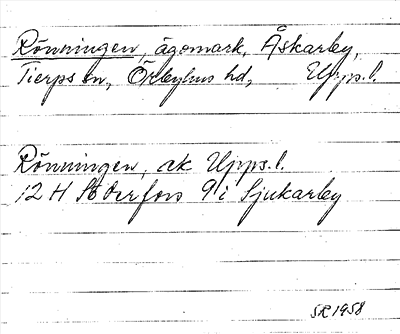 Rönningen, ägomark, Åskarby,
Tierps sn, Örbyhus hd, Upps.l.
Rönningen, ek Upps.l.
12 H Söderfors 9 i Sjukarby
SR 1958